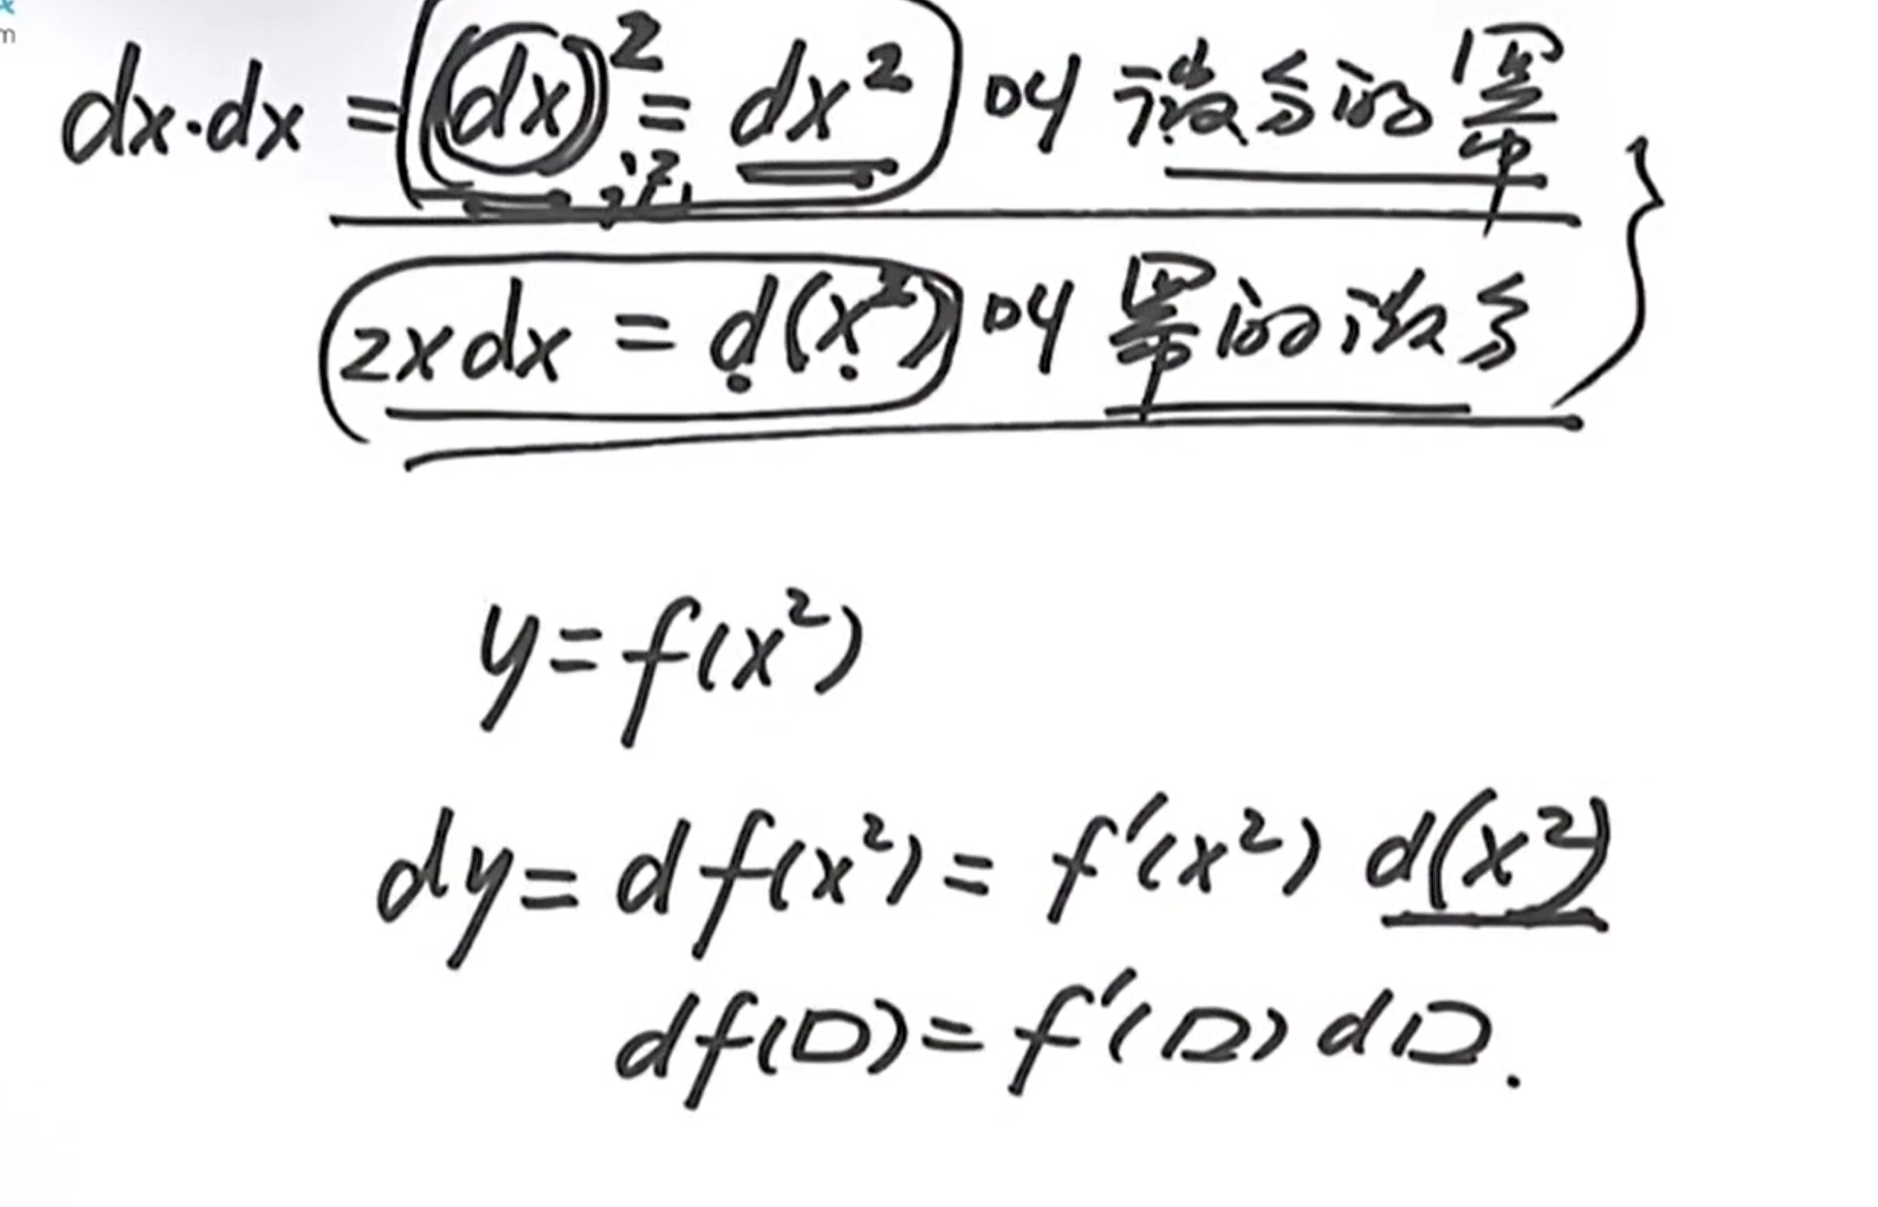 m
dx·dx = (dx)² = dx² 叫 微分的幂
记
2xdx = d(x²) 叫 幂的微分
y = f(x²)
dy = d f(x²) = f′(x²) d(x²)
df(□) = f′(□) d□.